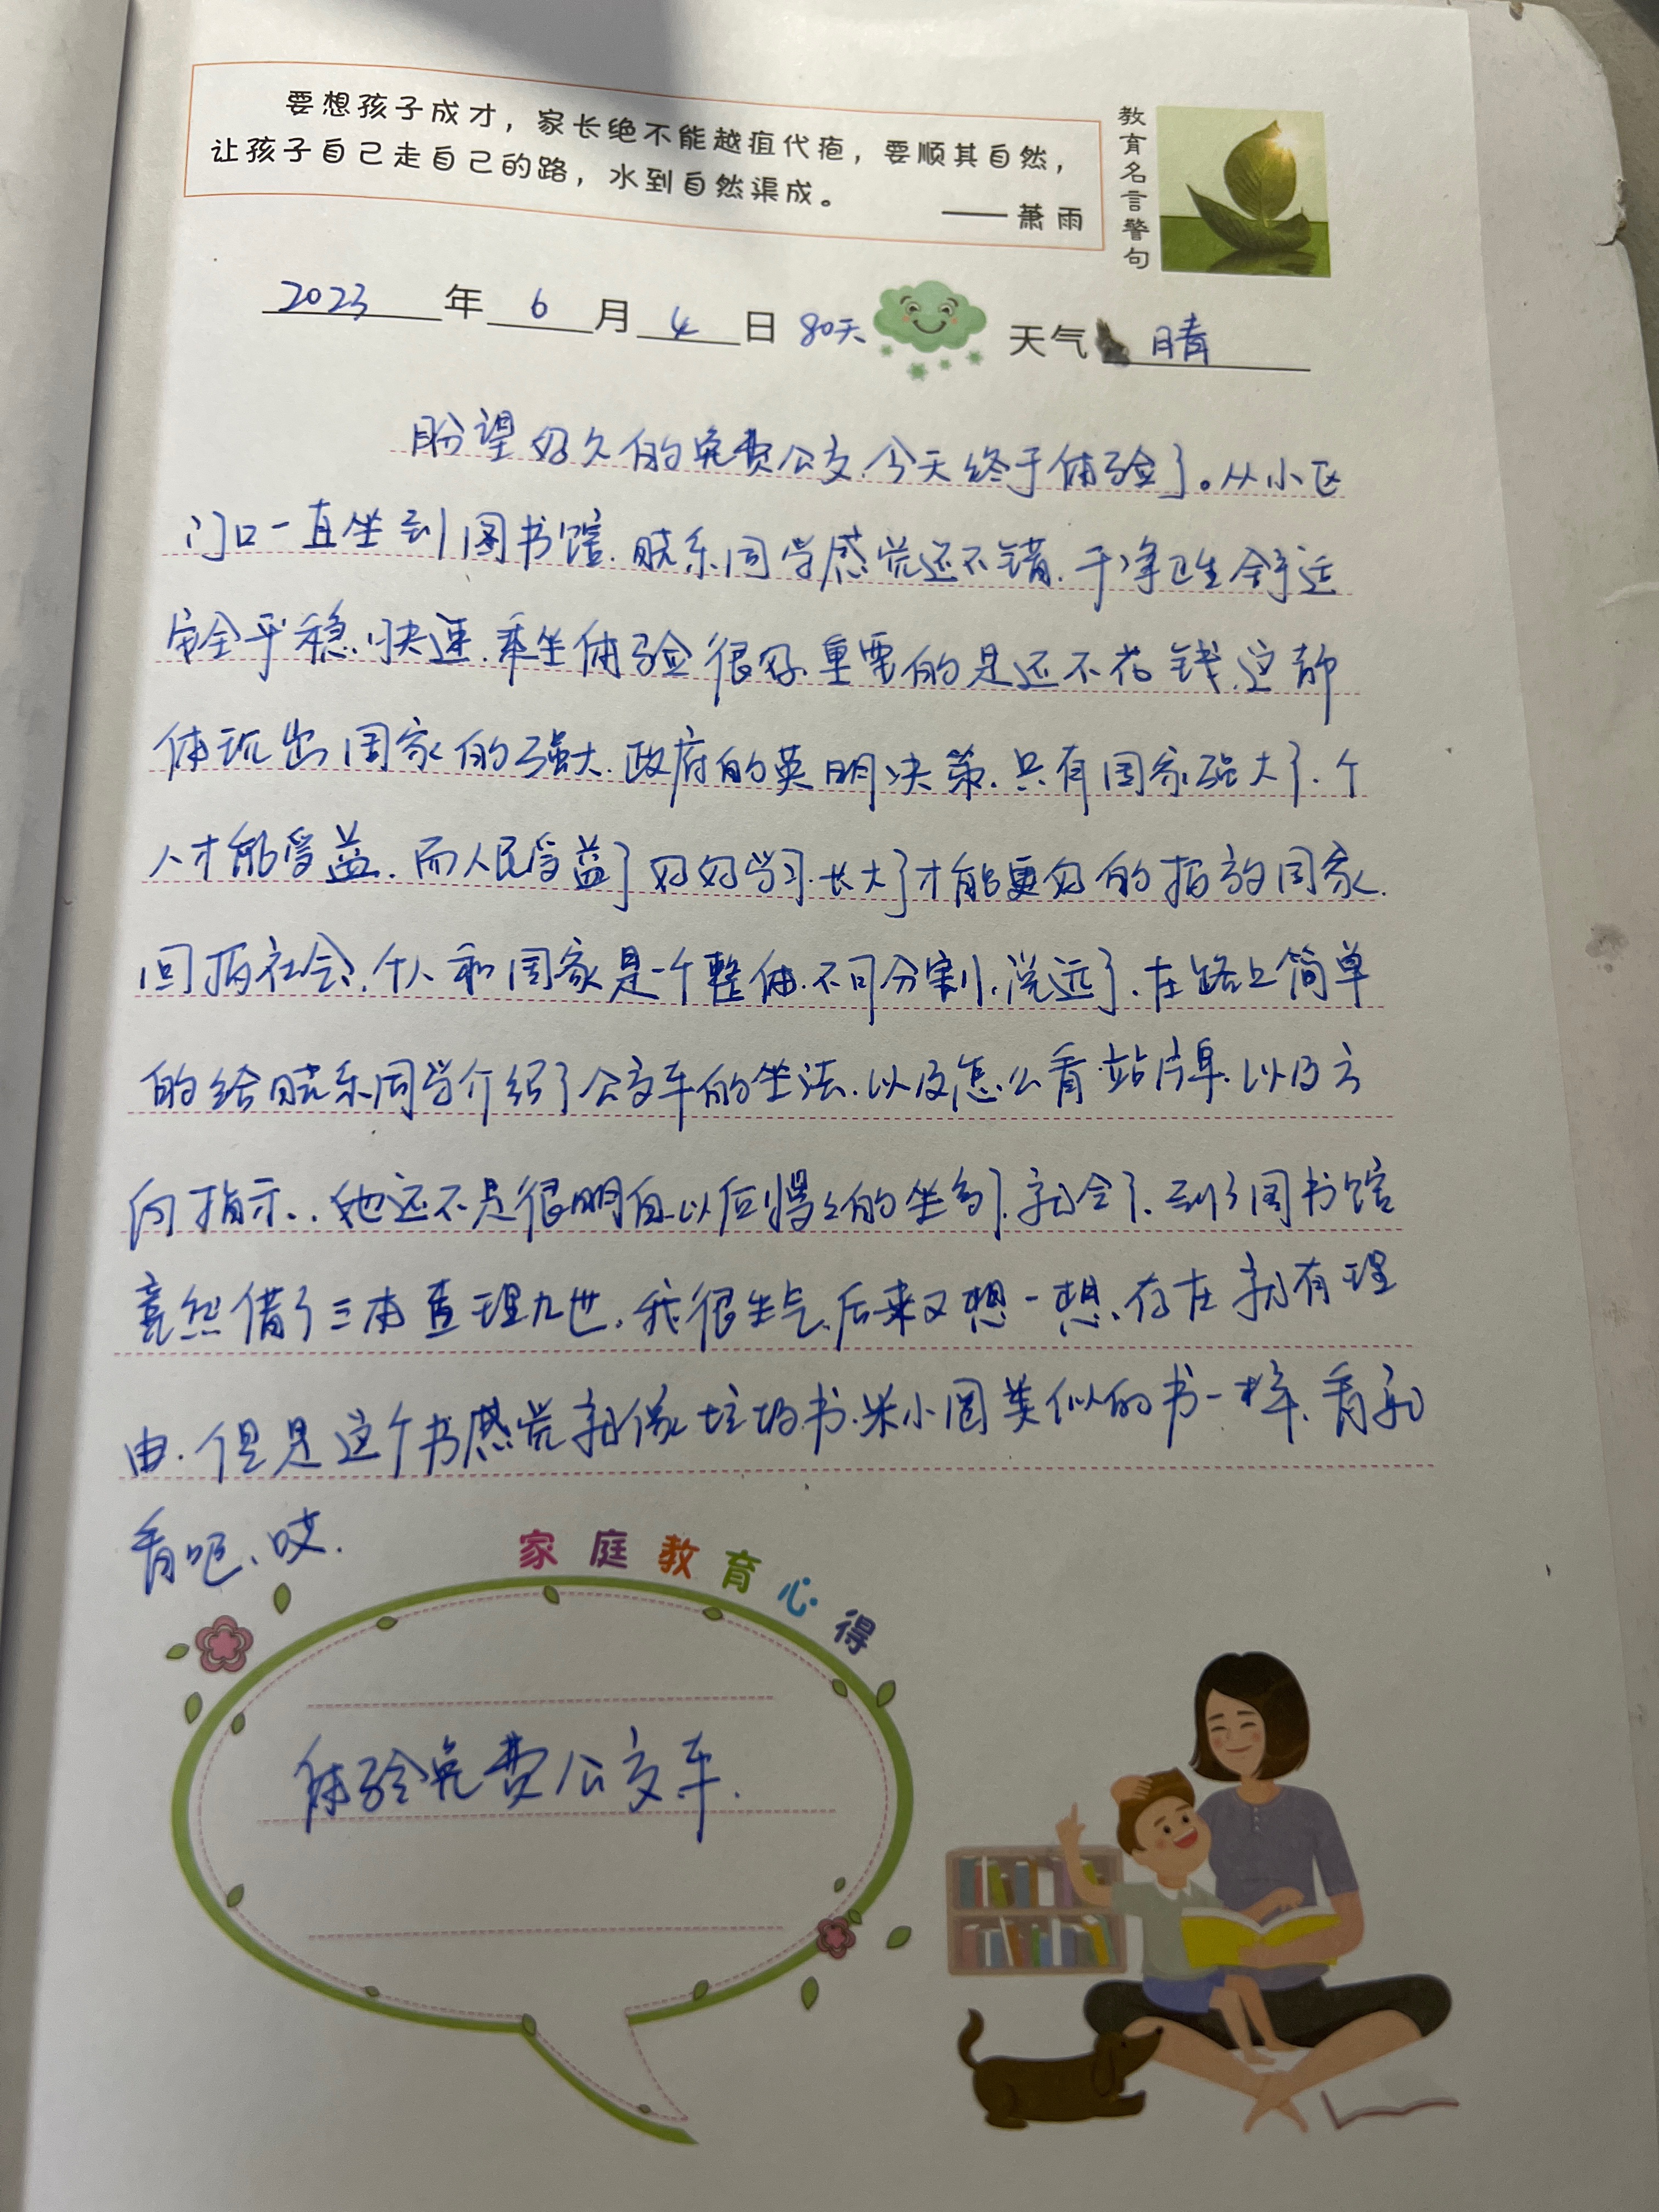 要想孩子成才，家长绝不能越疽代疱，要顺其自然，
让孩子自己走自己的路，水到自然渠成。
——萧雨
教育名言警句
2023年6月4日 80天 天气 晴
盼望好久的免费公交.今天终于体验了。从小区
门口一直坐到图书馆.晓东同学感觉还不错.干净卫生舒适
安全平稳.快速.乘坐体验很好.重要的是还不花钱.这都
体现出国家的强大.政府的英明决策.只有国家强大了.个
人才能受益.而人民受益了好好学习.长大了才能更好的报效国家.
回报社会.个人和国家是一个整体.不可分割.说远了.在路上简单
的给晓东同学介绍了公交车的坐法.以及怎么看站牌.以及方
向指示..她还不是很明白.以后慢々的坐多了.就会了.到了图书馆
竟然借了三本查理九世.我很生气.后来又想一想.存在就有理
由.但是这个书感觉就像垃圾书.米小圈类似的书一样.看就
看吧、哎.
家庭教育心得
体验免费公交车.